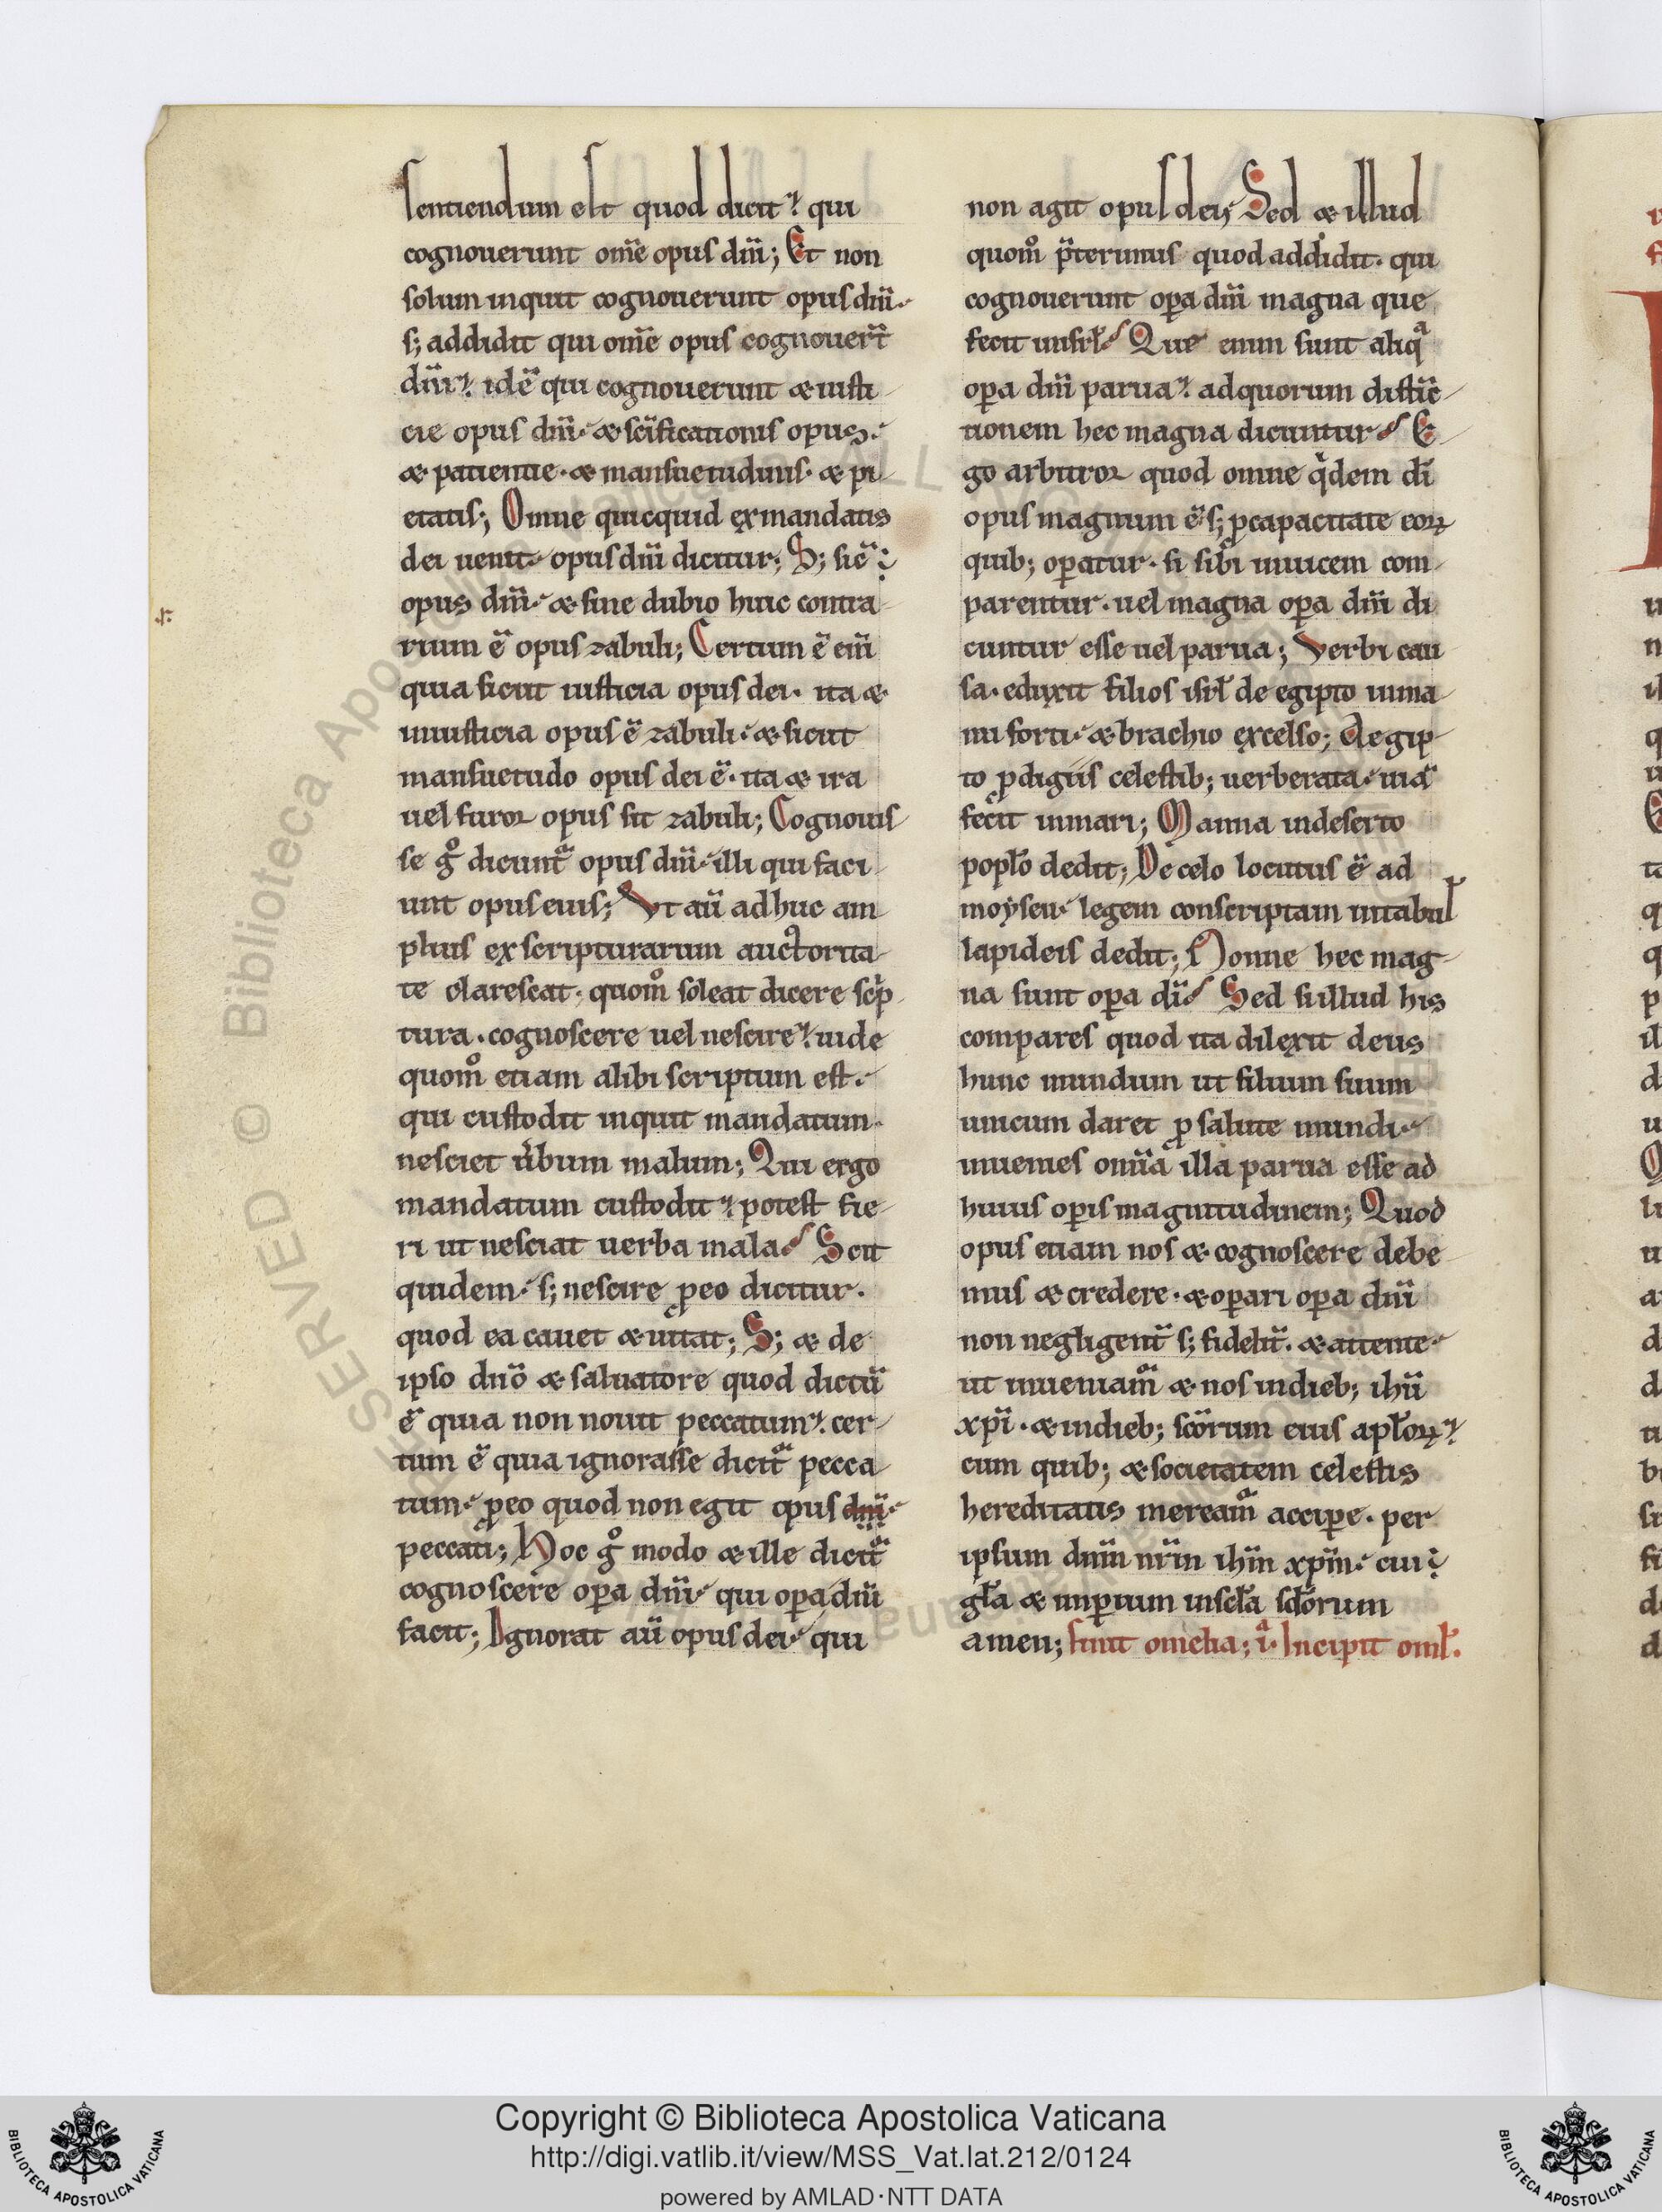 sentiendum est quod dicit? qui
cognouerunt om̄e opus dn̄i; Et non
solum inquit cognouerunt opus dn̄i.
s; addidit qui om̄e opus cognouer̄t
dn̄i? idē qui cognouerunt & iusti
cie opus dn̄i. & sc̄ificationis opus.
& patientie. & mansuetudinis. & pi
etatis; Omne quicquid ex mandatis
dei uenit. opus dn̄i dicitur; S; sic̄
opus dn̄i. & sine dubio huic contra
rium ē opus zabuli; Certum ē eni̅
quia sicut iusticia opus dei. ita &
iniusticia opus ē zabuli. & sicut
mansuetudo opus dei ē. ita & ira
uel furor opus sit zabuli; Cognouis
se gͦ dicunt᷑ opus dn̄i. illi qui faci
unt opus eius; Vt aū adhuc am
plius ex scripturarum auctorita
te clarescat. quom̊ soleat dicere scͥp
tura. cognoscere uel nescire? uide
quom̊ etiam alibi scriptum est.
qui custodit inquit mandatum.
nesciet ūbum malum; Qui ergo
mandatum custodit? potest fie
ri ut nesciat uerba mala? Scit
quidem. s; nescire ꝓ eo dicitur.
quod ea cauet & uitat; S; & de
ipso dn̄o & saluatore quod dictū
ē quia non nouit peccatum? cer
tum ē quia ignorasse dicit᷑ pecca
tum. ꝓ eo quod non egit opus dn̄i.
peccati; Hoc gͦ modo & ille dicit᷑
cognoscere oꝑa dn̄i. qui oꝑa dn̄i
facit; Ignorat aū opus dei. qui
non agit opus dei; Sed & illud
quom̊ p̄terimus quod addidit. qui
cognouerunt oꝑa dn̄i magna que
fecit in isrł? Que enim sunt aliqͣ
oꝑa dn̄i parua? ad quorum distīc
tionem hec magna dicuntur? E
go arbitror quod omne qͥdem dī
opus magnum ē. s; ꝓ capacitate eoꝝ
quib; oꝑatur. si sibi inuicem com
parentur. uel magna oꝑa dn̄i di
cuntur esse uel parua; Verbi cau
sa. eduxit filios isrł de egipto in ma
nu forti. & brachio excelso; Aegip
to ꝓdigiis celestib; uerberata. uiā
fecit in mari; Manna in deserto
popło dedit; De celo locutus ē ad
moysen. legem conscriptam in tabuł
lapideis dedit; Nonne hec mag
na sunt oꝑa dī? Sed si illud his
compares quod ita dilexit deus
hunc mundum ut filium suum
unicum daret ꝓ salute mundi.
inuenies omīa illa parua esse ad
huius oꝑis magnitudinem; Quod
opus etiam nos & cognoscere debe
mus & credere. & oꝑari oꝑa dn̄i
non negligent̄ s; fidelit̄. & attente.
ut inueniam᷑ & nos in dieb; ih̄u
xp̄i. & in dieb; sc̄orum eius apłoꝝ?
cum quib; & societatem celestis
hereditatis meream᷑ acciꝑe. per
ipsum dn̄m nr̄m ih̄m xp̄m. cui
gła & imꝑium in scła scłorum
amen; finit omelia; iͣ. Incipit omł.
Copyright © Biblioteca Apostolica Vaticana
http://digi.vatlib.it/view/MSS_Vat.lat.212/0124
powered by AMLAD·NTT DATA
BIBLIOTECA APOSTOLICA VATICANA
BIBLIOTECA APOSTOLICA VATICANA